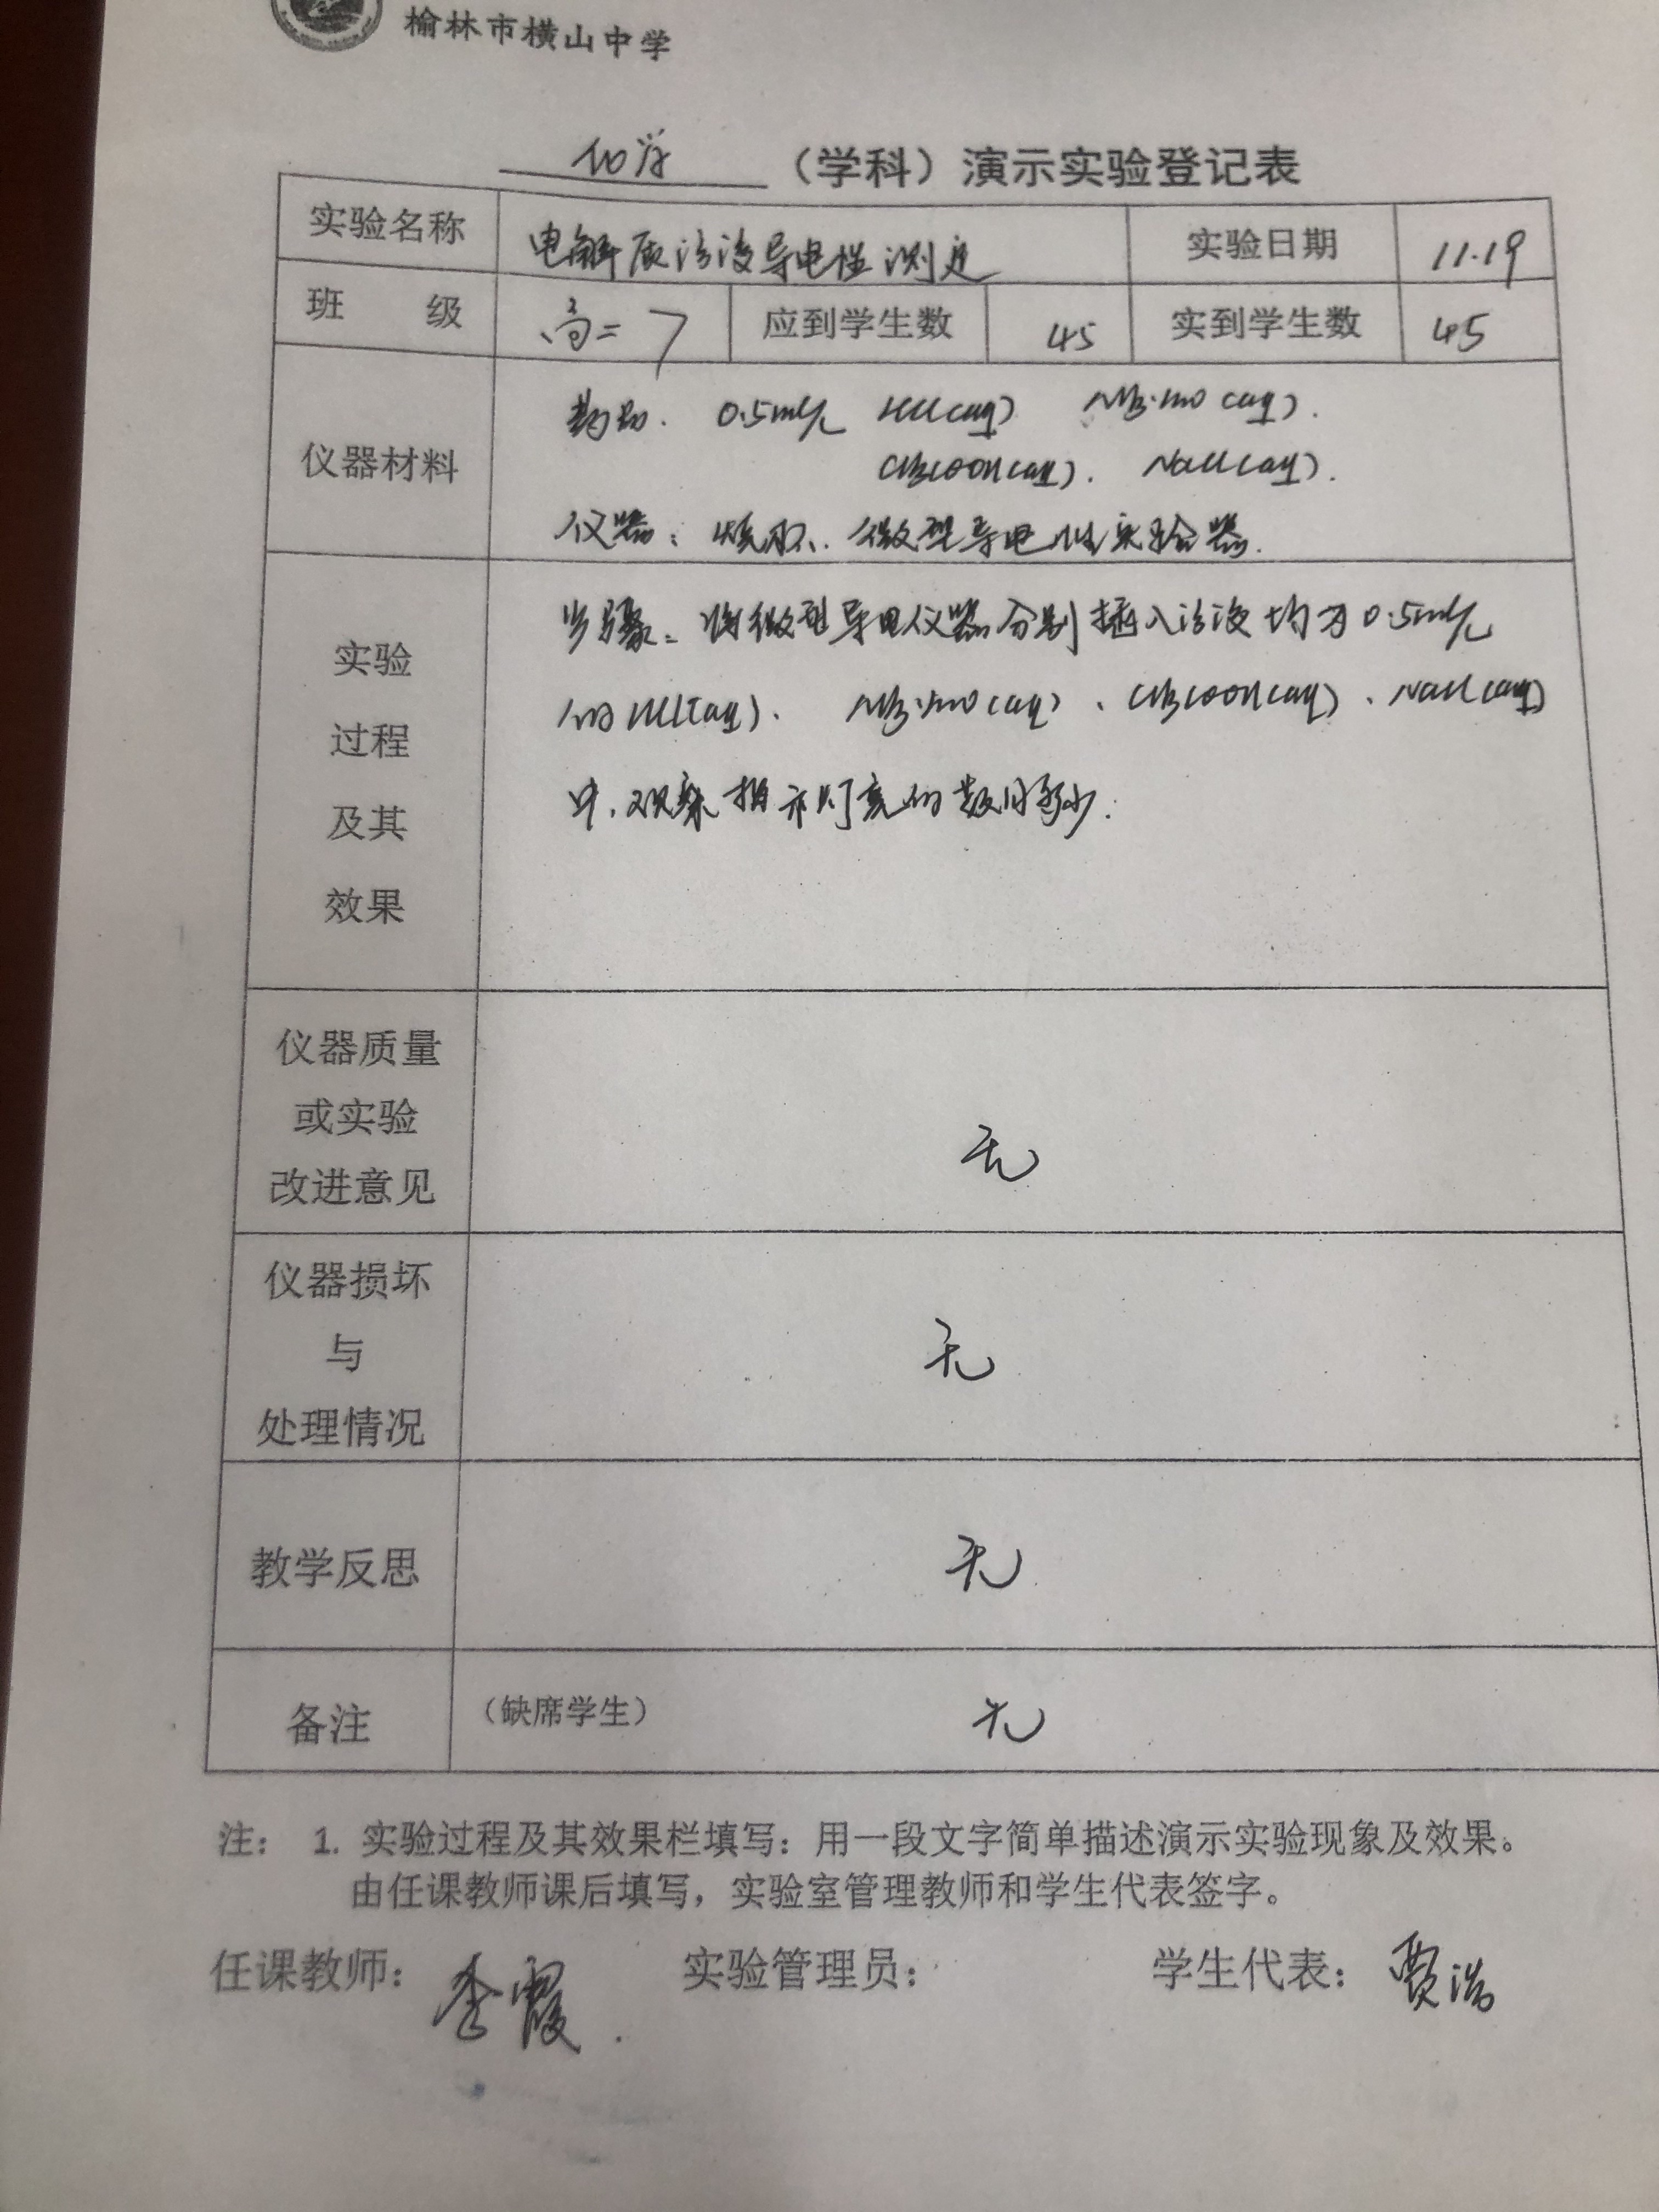 榆林市横山中学
化学（学科）演示实验登记表
实验名称 电解质溶液导电性测定 实验日期 11.19
班 级 高二 7 应到学生数 45 实到学生数 45
仪器材料
药品. 0.5mol/L HCl(aq) NH3·H2O(aq).
CH3COOH(aq). NaCl(aq).
仪器: 烧杯、微型导电性实验器.
实验
过程
及其
效果
步骤: 将微型导电仪器分别插入溶液均为0.5mol/L
的HCl(aq)、NH3·H2O(aq)、CH3COOH(aq)、NaCl(aq)
中,观察指示灯亮的数目多少.
仪器质量
或实验
改进意见
无
仪器损坏
与
处理情况
无
教学反思 无
备注 （缺席学生） 无
注： 1. 实验过程及其效果栏填写：用一段文字简单描述演示实验现象及效果。
由任课教师课后填写，实验室管理教师和学生代表签字。
任课教师：李霞 实验管理员： 学生代表：贾浩